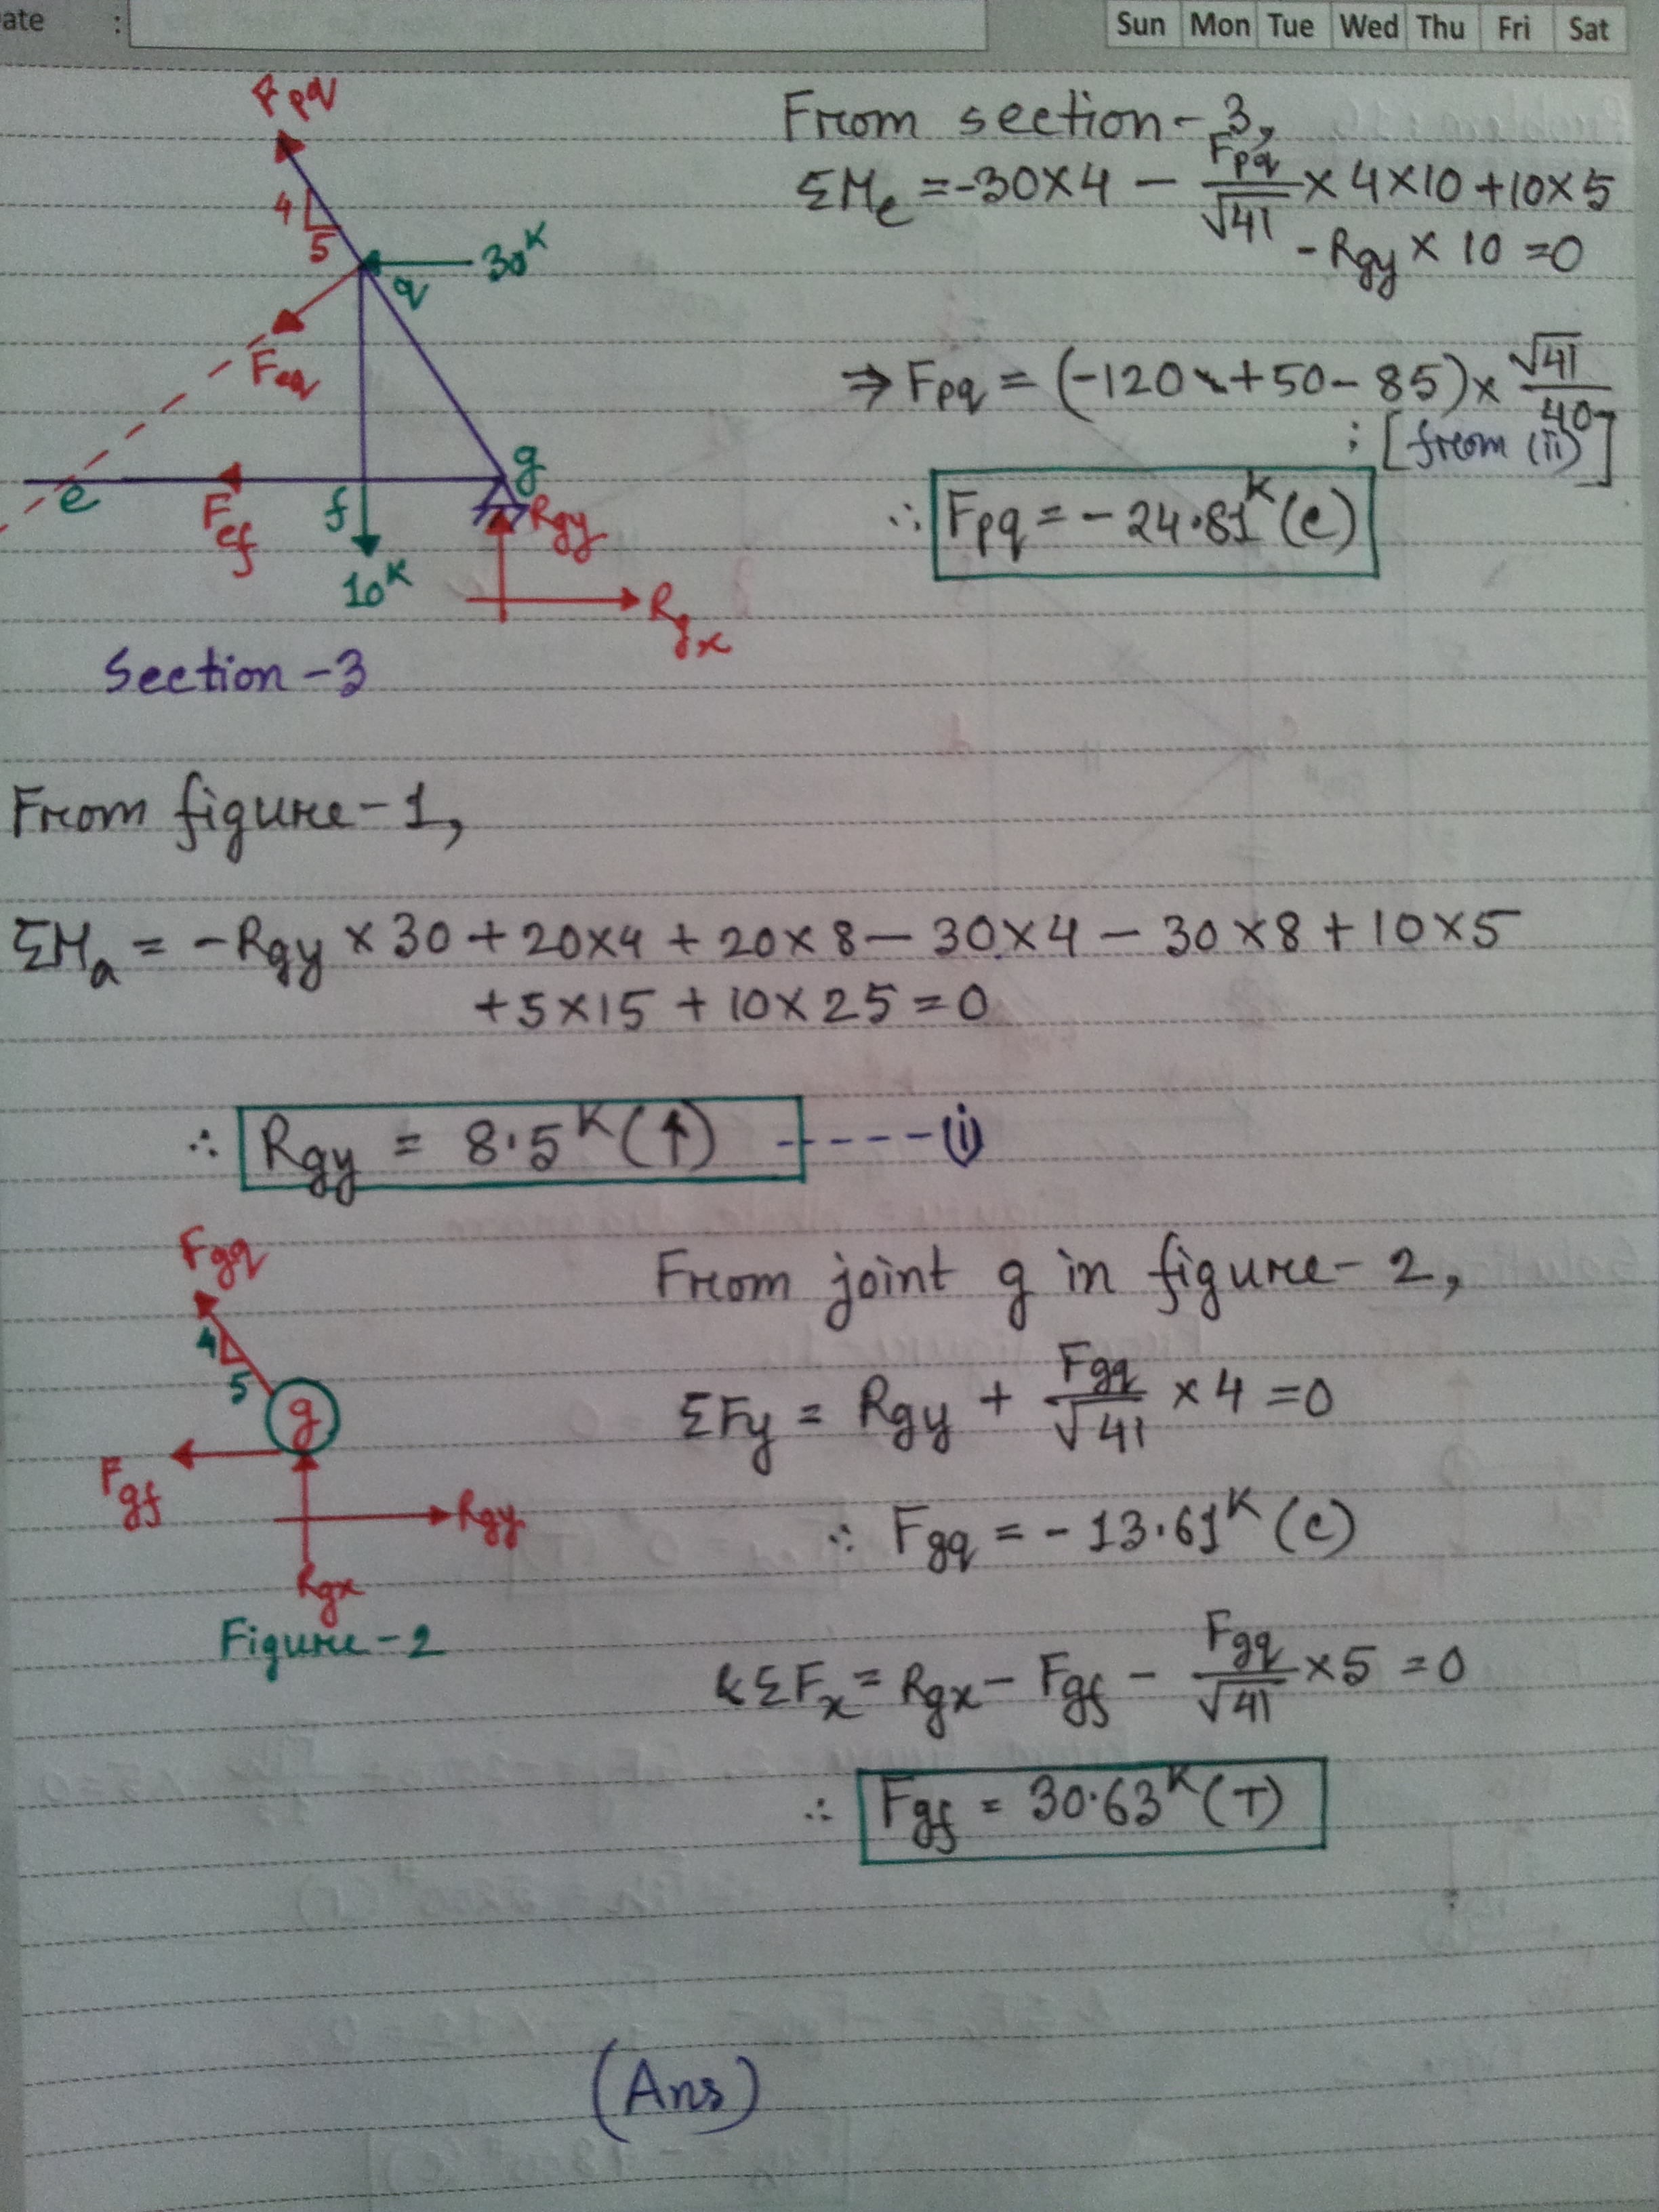 ate :
Sun Mon Tue Wed Thu Fri Sat
Fpq
4
5
30K
q
Feq
e
Fef
f
g
Rgy
10K
Rgx
Section-3
From section-3,
ΣMe = -30×4 - Fpq/√41 × 4×10 + 10×5
- Rgy × 10 = 0
⇒ Fpq = (-120 + 50 - 85) × √41/40
; [from (ii)]
∴ Fpq = - 24.81K (c)
From figure-1,
ΣMa = - Rgy × 30 + 20×4 + 20×8 - 30×4 - 30×8 + 10×5
+ 5×15 + 10×25 = 0
∴ Rgy = 8.5K (↑) ----(i)
Fgq
4
5
g
Fgf
Rgy
Rgx
Figure-2
From joint g in figure-2,
ΣFy = Rgy + Fgq/√41 × 4 = 0
∴ Fgq = - 13.61K (c)
& ΣFx = Rgx - Fgf - Fgq/√41 × 5 = 0
∴ Fgf = 30.63K (T)
(Ans)